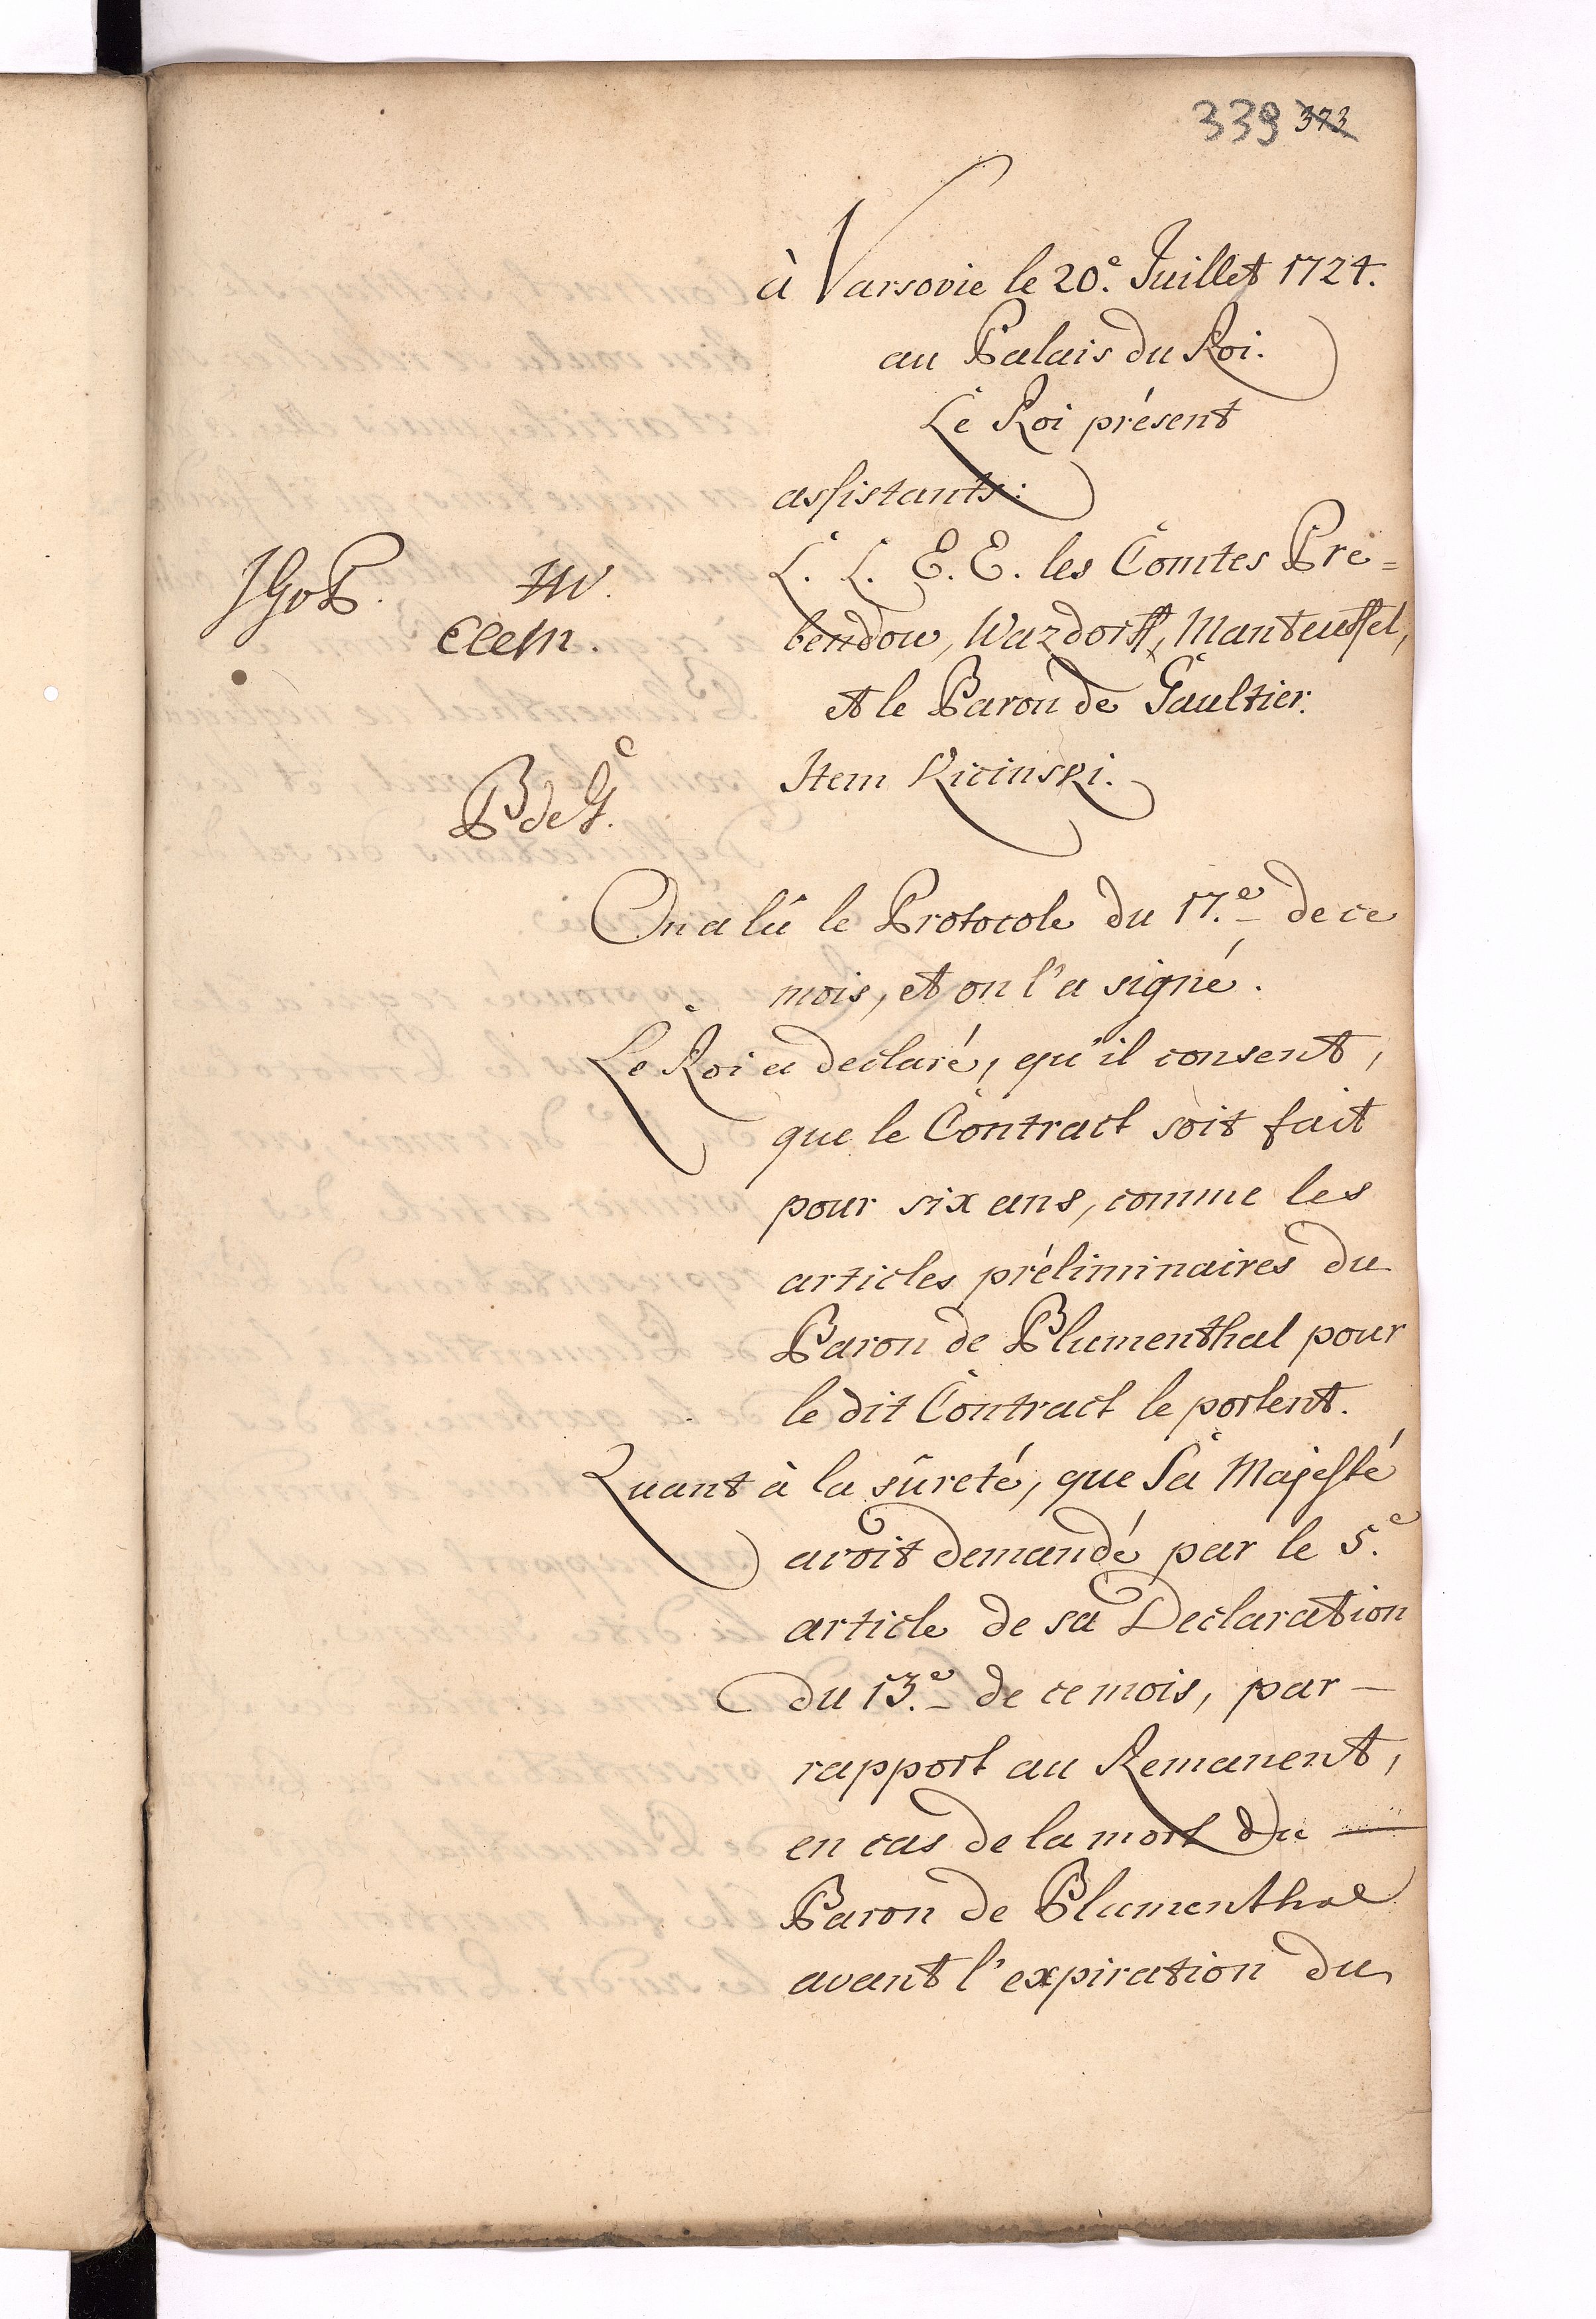 339 373
à Varsovie le 20.e Juillet 1724.
au Palais du Roi.
Le Roi présent
assistants:
L. L. E. E. les Comtes Pre=
bendow, Wazdorff, Manteuffel,
et le Baron de Gaultier.
Item Ricinski.
JGvP. HW.
CCCM.
BdeG.
On a lû le Protocole du 17.e de ce
mois, et on l'a signé.
Le Roi a declaré, qu'il consent,
que le Contract soit fait
pour six ans, comme les
articles préliminaires du
Baron de Blumenthal pour
le dit Contract le portent.
Quant à la sûreté, que Sa Majesté
avoit demandé par le 5.e
article de sa Declaration
du 13.e de ce mois, par-
rapport au Remanent,
en cas de la mort du —
Baron de Blumenthal
avant l'expiration du